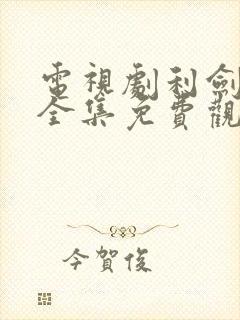 電視劇利劍
全集免費觀
今賀俊